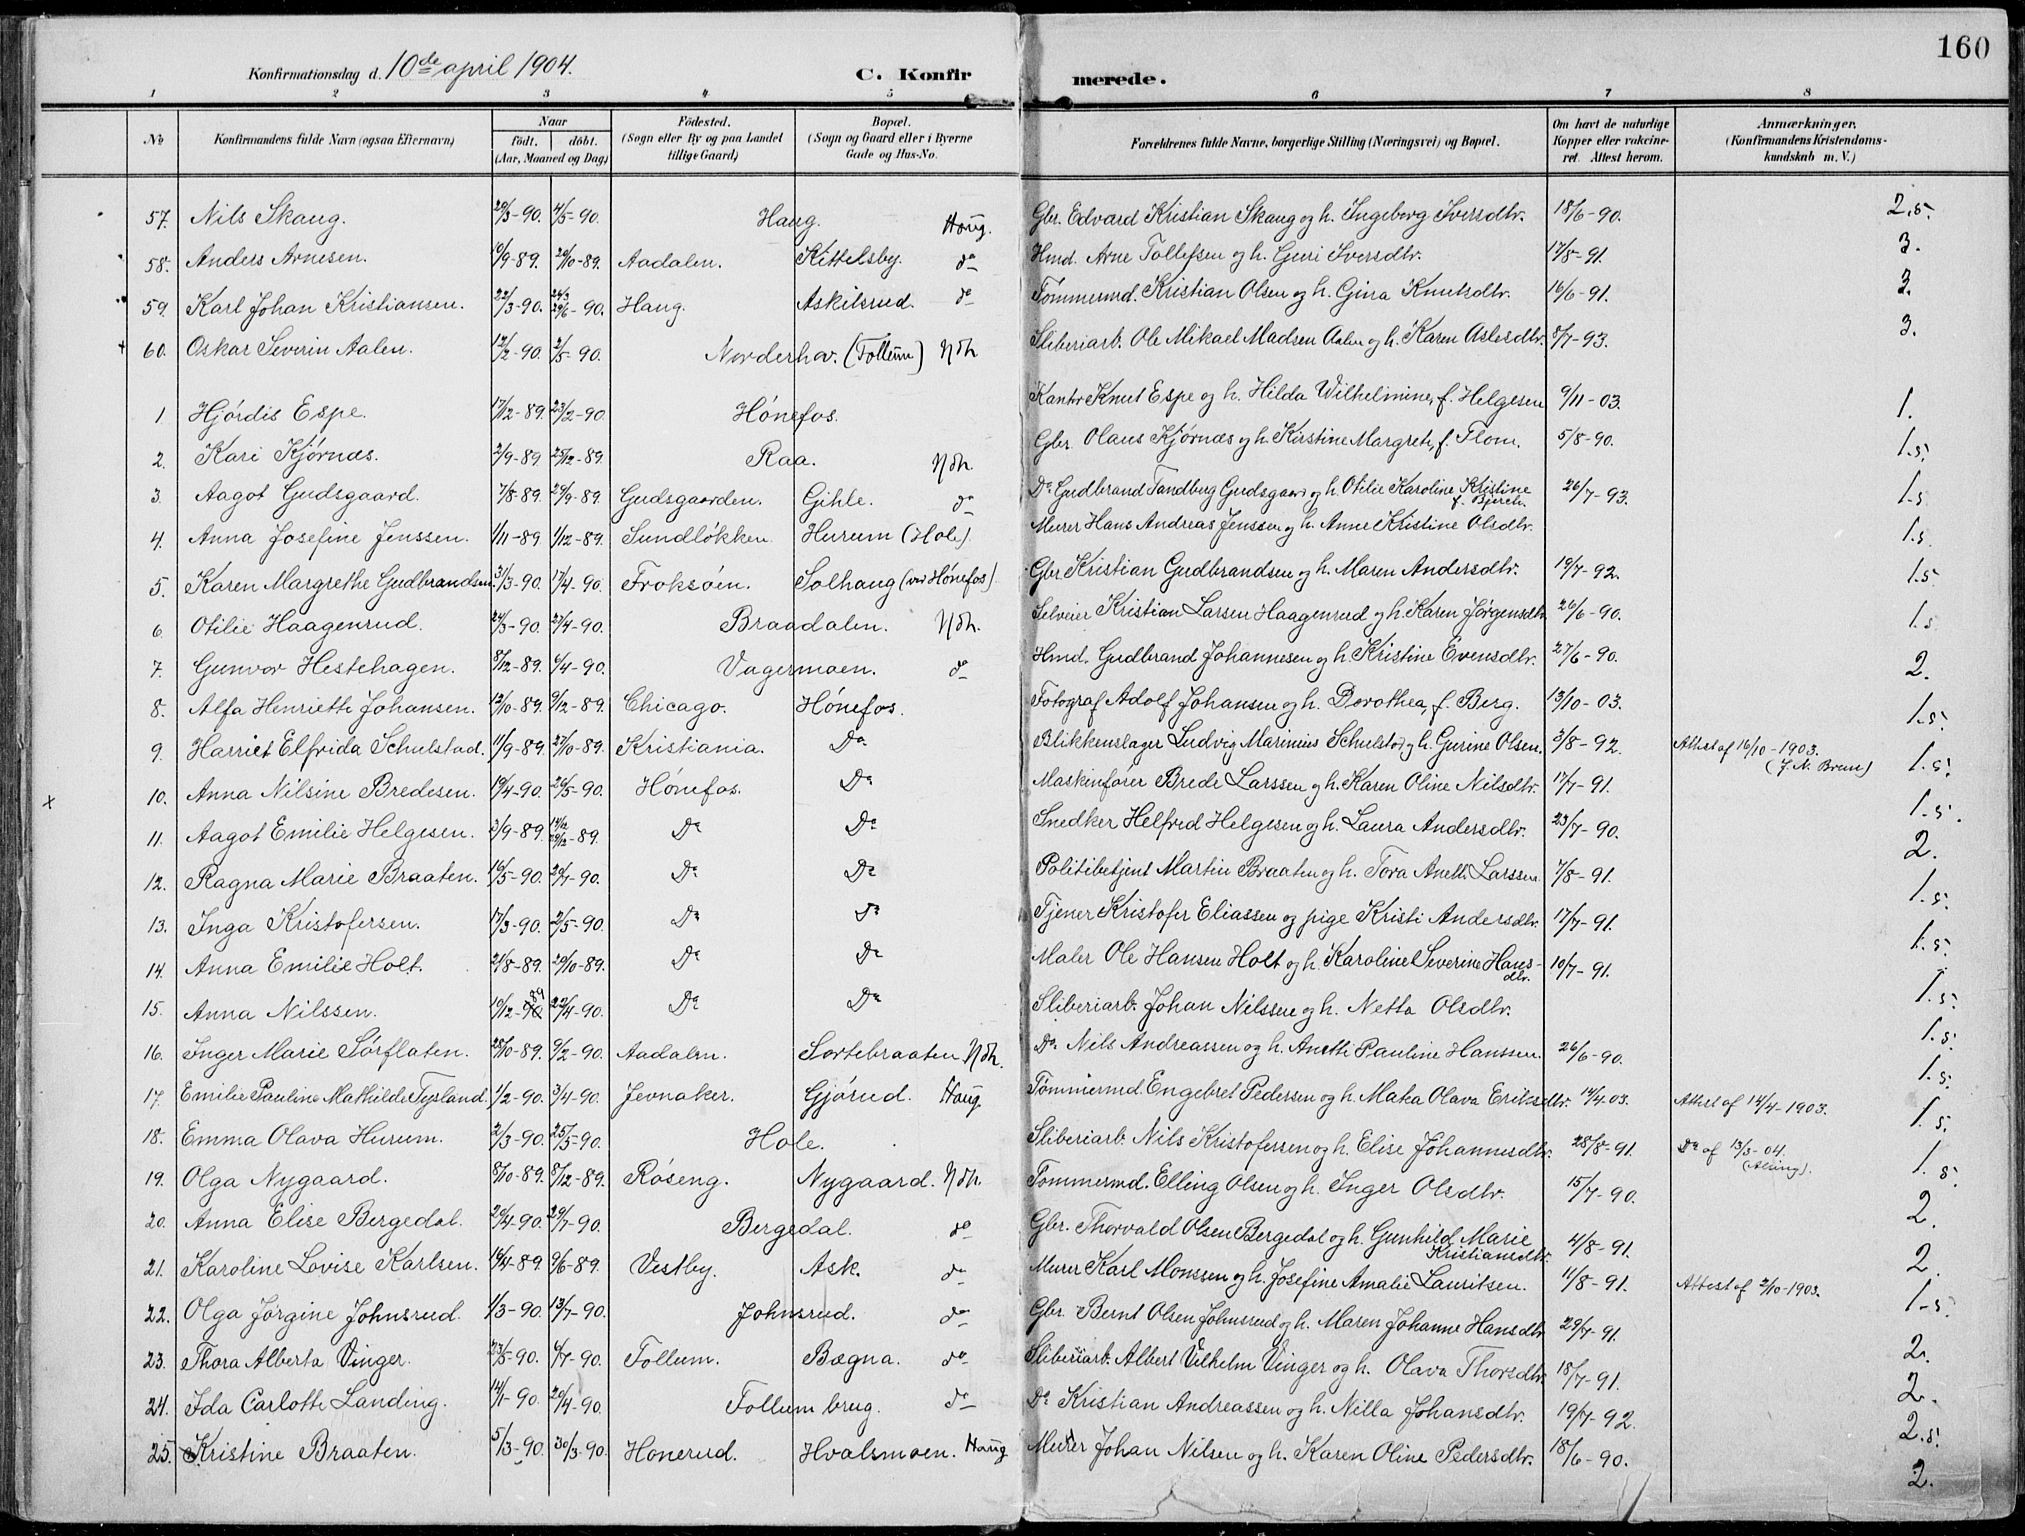 160
Konfirmationsdag d. 10de april 1904.
C. Konfirmerede.
1 2 3 4 5 6 7 8
No
Konfirmandens fulde Navn (ogsaa Efternavn)
Naar
født. døbt.
(Aar, Maaned og Dag)
Fødested.
(Sogn eller By og paa Landet
tillige Gaard)
Bopæl.
(Sogn og Gaard eller i Byerne
Gade og Hus-No.
Forældrenes fulde Navne, borgerlige Stilling (Næringsvei) og Bopæl.
Om havt de naturlige
Kopper eller vakcine-
ret. Attest herom.
Anmærkninger.
(Konfirmandens Kristendoms-
kundskab m. V.)
57. Nils Skaug. 29/3-90. 4/5-90. Haug. Haug. Gbr. Edvard Kristian Skaug og h. Ingeborg Iversdtr. 18/6-90. 2.5.
58. Anders Arnesen. 10/9-89. 20/10-89. Aadalen. Kittelsby. do Hmd. Arne Tollefsen og h. Guri Iversdtr. 17/8-91. 3.
59. Karl Johan Kristiansen. 22/3-90. 24/3 29/6-90. Haug. Askilsrud. do Tømmermd. Kristian Olsen og h. Gina Knutsdtr. 16/6-91. 3.
60. Oskar Severin Aalen. 12/2-90. 2/5-90. Norderhov. (Follum) Ndh. Sliberiarb. Ole Mikael Madsen Aalen og h. Karen Aslesdtr. 8/7-93. 3.
1. Hjørdis Espe. 17/12-89. 23/2-90. Hønefos. Kantor Knut Espe og h. Hilda Wilhelmine, f. Helgesen 9/11-03. 1.
2. Kari Kjørnæs. 2/9-89. 25/12-89. Raa. Ndh. Gbr. Olaus Kjørnæs og h. Kirstine Margreth, f. Flom. 5/8-90. 1.5.
3. Aagot Gudsgaard. 7/8-89. 29/9-89. Gudsgaarden. Gihle. do Do Gudbrand Tandberg Gudsgaard og h. Otilie Karoline Kristine 26/7-93. 1.5
4. Anna Josefine Jenssen. 1/11-89. 1/12-89. Sundløkken. Hurum (Hole). Murer Hans Andreas Jenssen og h. Anne Kristine Olsdtr. 1.5.
5. Karen Margrethe Gudbrandsen. 31/3-90. 17/4-90. Froksøen. Solhaug (ved Hønefos). Gbr Kristian Gudbrandsen og h. Maren Andersdtr. 19/7-92. 1.5
6. Otilie Haagenrud. 24/3-90. 27/4-90. Braadalen. Ndh. Selveier Kristian Larsen Haagenrud og h. Karen Jørgensdtr. 26/6-90. 1.5
7. Gunvor Hestehagen. 8/12-89. 6/4-90. Vagermoen. do Hmd. Gudbrand Johannesen og h. Kristine Evensdtr. 27/6-90. 2.
8. Alfa Henriette Johansen. 12/10-89. 9/12-89. Chicago. Hønefos. Fotograf Adolf Johansen og h. Dorothea, f. Berg. 13/10-03. 1.5.
9. Harriet Elfrida Schulstad. 11/9-89. 27/10-89. Kristiania. Do Blikkenslager Ludvig Marinius Schulstad og h. Gurine Olsen. 3/8-92. Attest af 16/10-1903. (J. N. Brun) 1.5.
10. Anna Nilsine Bredesen. 19/4-90. 26/5-90. Hønefos. Do Maskinfører Brede Larssen og h. Karen Oline Nilsdtr. 17/7-91. 1.5.
11. Aagot Emilie Helgesen. 3/9-89. 14/12 29/12-89. Do Do Snedker Helfred Helgesen og h. Laura Andersdtr. 23/7-90. 2.
12. Ragna Marie Braaten. 16/5-90. 20/7-90. Do Do Politibetjent Martin Braaten og h. Tora Aneth. Larssen 7/8-91. 1.5.
13. Inga Kristofersen. 17/3-90. 2/5-90. Do Do Tjener Kristofer Eliassen og pige Kristi Andersdtr. 17/7-91. 1.5.
14. Anna Emilie Holt. 21/8-89. 20/10-89. Do Do Maler Ole Hansen Holt og h. Karoline Severine Hans- dtr. 10/7-91. 1.5.
15. Anna Nilssen. 10/12-90 89 22/4-90. Do Do Sliberiarb. Johan Nilssen og h. Netta Olsdtr. 1.5.
16. Inger Marie Sørflaten. 28/10-89. 9/2-90. Aadalen. Sortebraaten Ndh. Do Nils Andreassen og h. Anette Pauline Hanssen. 26/6-90. 1.5.
17. Emilie Pauline Mathilde Tysland. 1/2-90. 3/4-90. Jevnaker. Gjørud. Haug. Tømmermd. Engebret Pedersen og h. Mata Olava Eriksdtr. 14/4.03. Attest af 14/4-1903. 1.5.
18. Emma Olava Hurum. 2/3-90. 25/5-90. Hole. Sliberiarb. Nils Kristofersen og h. Elise Johannesdtr. 28/8-91. Do af 13/3-04. 1.5.
19. Olga Nygaard. 8/10-89. 8/12-89. Røseng. Nygaard. Ndh. Tømmermd. Elling Olsen og h. Inger Olsdtr. 15/7-90. 2.
20. Anna Elise Bergedal. 20/4-90. 29/7-90. Bergedal. do Gbr. Thorvald Olsen Bergedal og h. Gunhild Marie Kristiansdtr. 4/8-91. 2.
21. Karoline Lovise Karlsen. 14/4-89. 9/6-89. Vestby. Ask. do Murer Karl Monssen og h. Josefine Amalie Lauritsen. 11/8-91. Attest af 2/10-1903. 1.5.
22. Olga Jørgine Johnsrud. 1/3-90. 13/7-90. Johnsrud. do Gbr. Bernt Olsen Johnsrud og h. Maren Johanne Hansdtr. 29/7-91. 2.
23. Thora Alberta Vinger. 23/5-90. 6/7-90. Follum. Bægna. do Sliberiarb. Albert Vilhelm Vinger og h. Olava Thorsdtr. 18/7-91. 2.
24. Ida Carlotte Landing. 14/1-90. 20/4-90. Follum brug. do Do Kristian Andreassen og h. Nilla Johansdtr. 19/7-92. 2.5.
25. Kristine Braaten. 5/3-90. 30/3-90. Honerud. Hvalsmoen. Haug Murer Johan Nilsen og h. Karen Oline Pedersdtr. 18/6-90. 2.